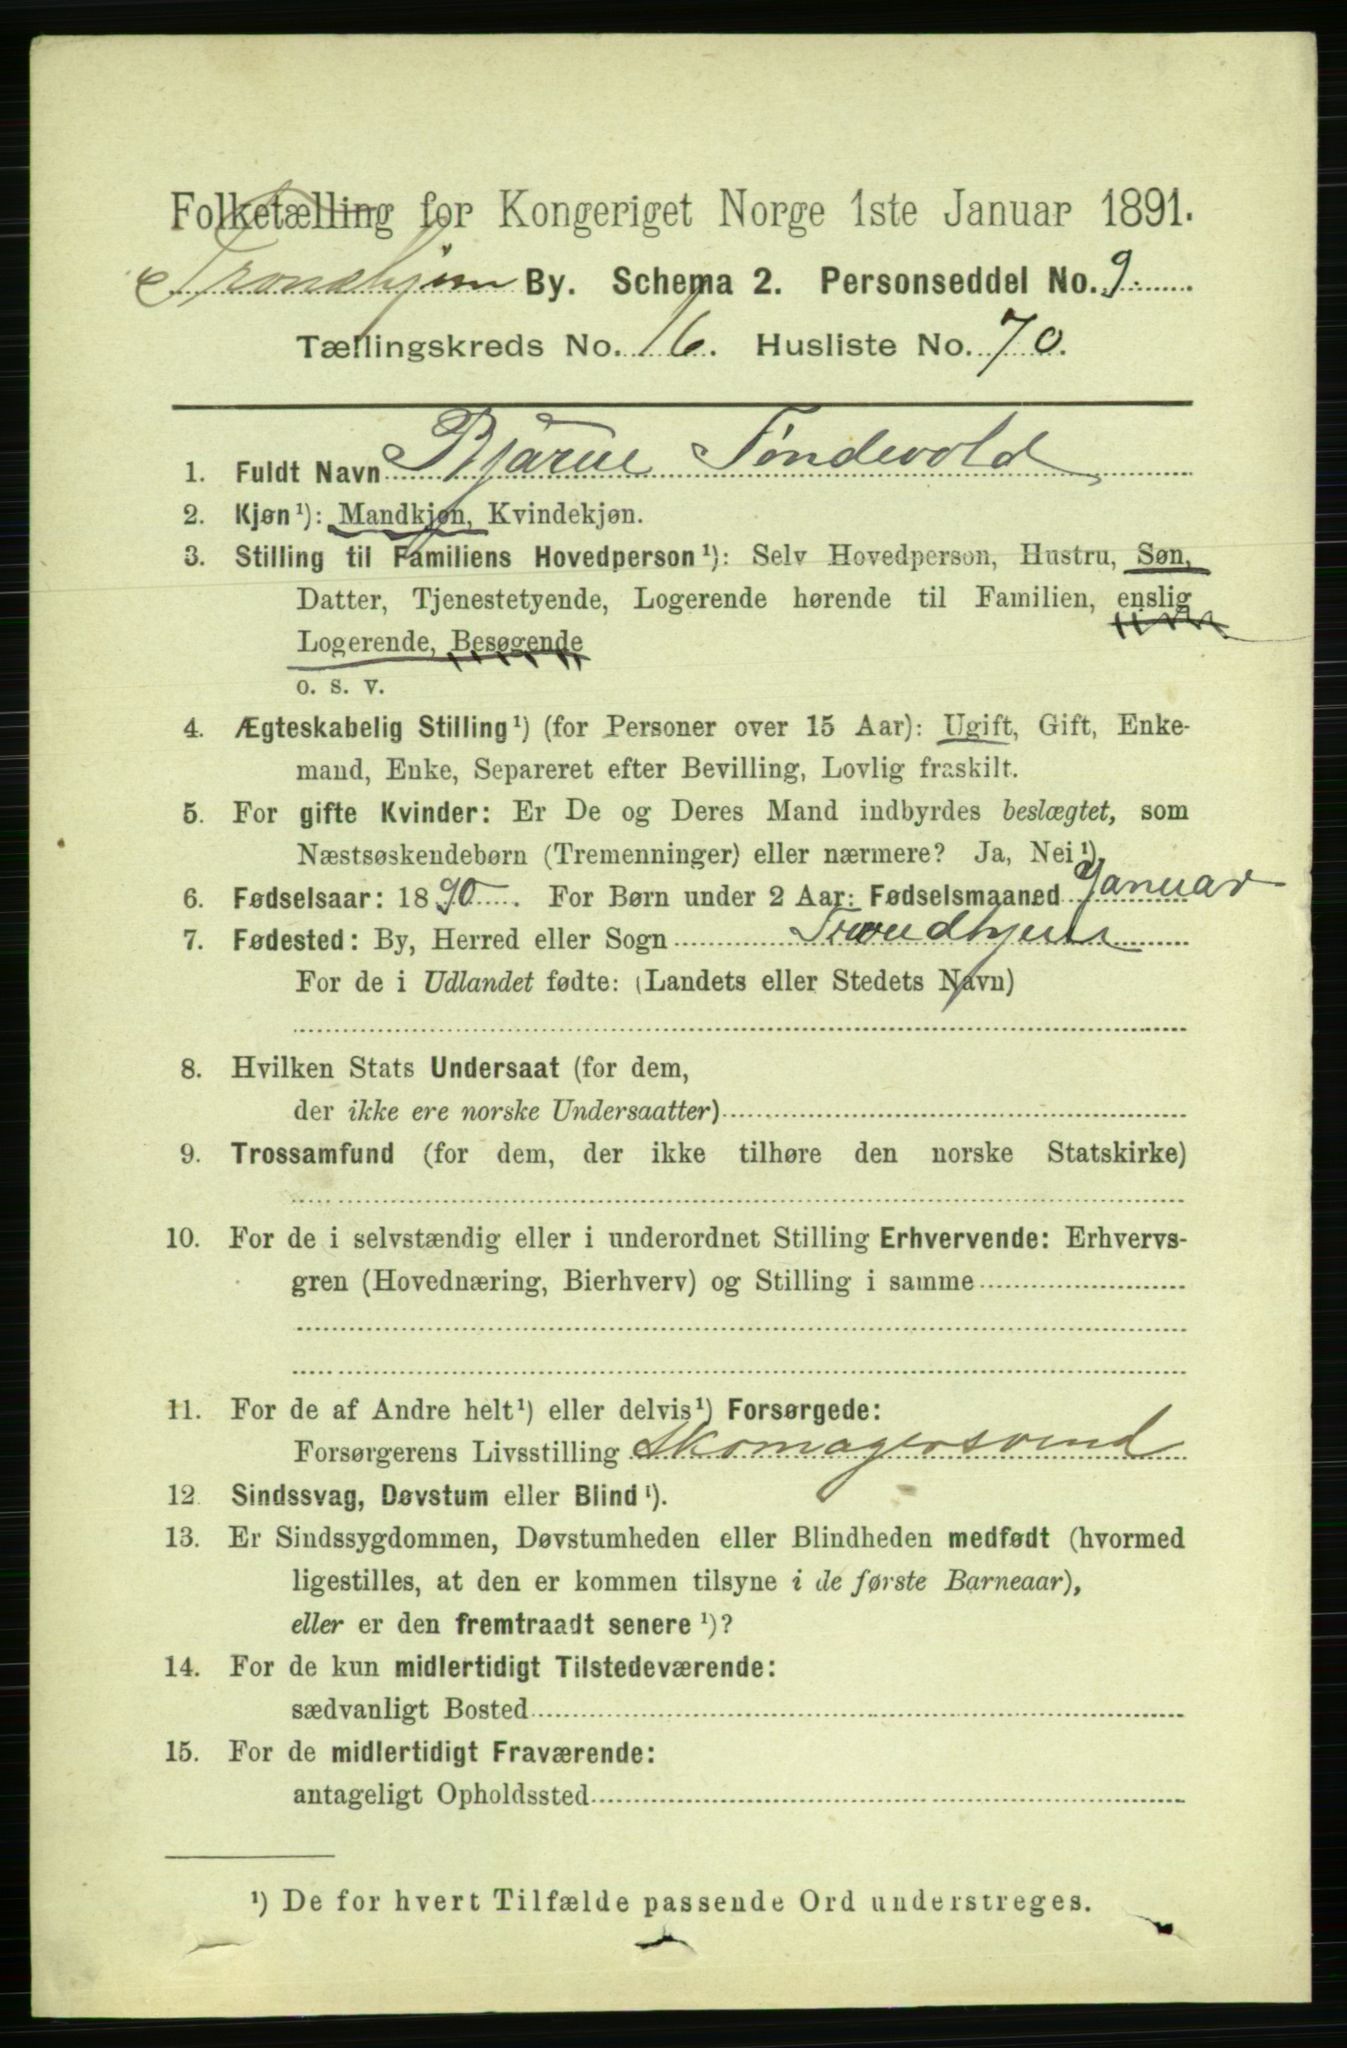 Folketælling for Kongeriget Norge 1ste Januar 1891.
Trondhjem By. Schema 2. Personseddel No. 9
Tællingskreds No. 16. Husliste No. 70.
1. Fuldt Navn Bjarne Søndevold
2. Kjøn¹): Mandkjøn, Kvindekjøn.
3. Stilling til Familiens Hovedperson¹): Selv Hovedperson, Hustru, Søn,
Datter, Tjenestetyende, Logerende hørende til Familien, enslig
Logerende, Besøgende
o. s. v.
4. Ægteskabelig Stilling¹) (for Personer over 15 Aar): Ugift, Gift, Enke-
mand, Enke, Separeret efter Bevilling, Lovlig fraskilt.
5. For gifte Kvinder: Er De og Deres Mand indbyrdes beslægtet, som
Næstsøskendebørn (Tremenninger) eller nærmere? Ja, Nei¹).
6. Fødselsaar: 1890. For Børn under 2 Aar: Fødselsmaaned Januar
7. Fødested: By, Herred eller Sogn Trondhjem
For de i Udlandet fødte: (Landets eller Stedets Navn)
8. Hvilken Stats Undersaat (for dem,
der ikke ere norske Undersaatter)
9. Trossamfund (for dem, der ikke tilhøre den norske Statskirke)
10. For de i selvstændig eller i underordnet Stilling Erhvervende: Erhvervs-
gren (Hovednæring, Bierhverv) og Stilling i samme
11. For de af Andre helt¹) eller delvis¹) Forsørgede:
Forsørgerens Livsstilling Skomagersvend
12 Sindssvag, Døvstum eller Blind¹).
13. Er Sindssygdommen, Døvstumheden eller Blindheden medfødt (hvormed
ligestilles, at den er kommen tilsyne i de første Barneaar),
eller er den fremtraadt senere¹)?
14. For de kun midlertidigt Tilstedeværende:
sædvanligt Bosted
15. For de midlertidigt Fraværende:
antageligt Opholdssted
¹) De for hvert Tilfælde passende Ord understreges.